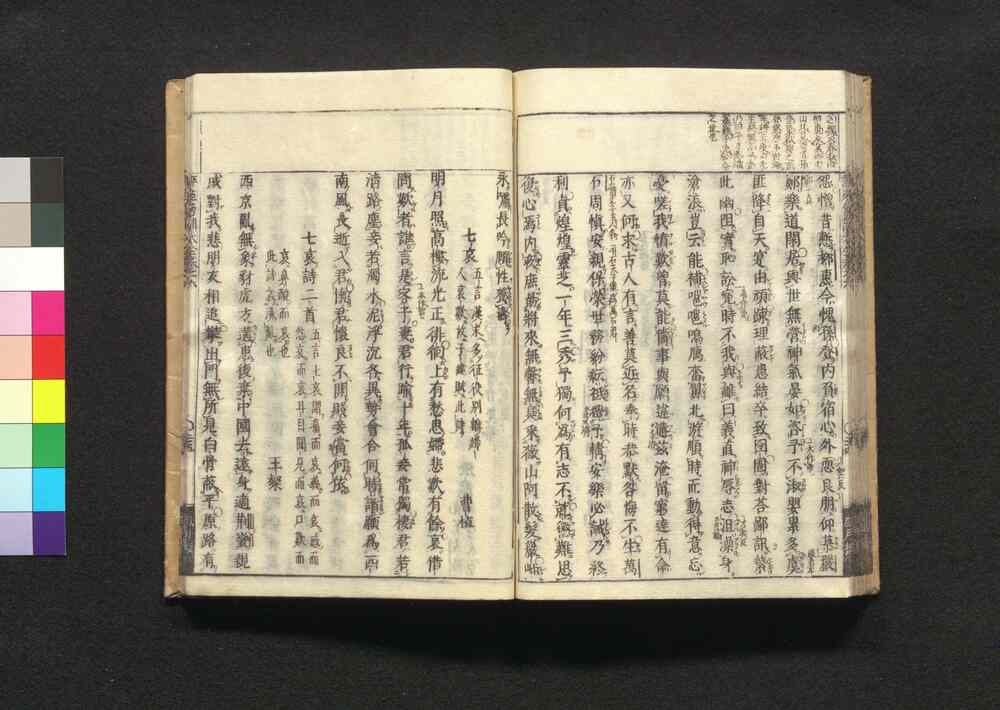 怨憎昔慙柳惠今愧孫登內負宿心外恧良朋仰慕嚴
鄭樂道閑居與世無營神氣晏如咨予不淑嬰累多虞
匪降自天寔由頑疎理蔽患結卒致囹圄對荅鄙訊縶
此幽阻實恥訟冤時不我與雖曰義直神辱志沮澡身
滄浪豈云能補嗈嗈鳴鴈奮翼北游順時而動得意忘
憂嗟我憤歎曾莫能儔事與願違遘茲淹留窮達有命
亦又何求古人有言善莫近名奉時恭默咎悔不生萬
石周慎安親保榮世務紛紜祗攪予情安樂必誡乃終
利貞煌煌靈芝一年三秀予獨何為有志不就懲難思
復心焉內疚庶勗將來無馨無臭采薇山阿散髮巖岫
永嘯長吟頤性養壽
七哀 五言漢末多征役別離婦
人哀歎故子建賦此詩 曹植
明月照高樓流光正徘徊上有愁思婦悲歎有餘哀借
問歎者誰言是客子妻君行踰十年孤妾常獨棲君若
清路塵妾若濁水泥浮沉各異勢會合何時諧願為西
南風長逝入君懷君懷良不開賤妾當何依
七哀詩二首 五言七哀謂痛而哀義而哀感而
怨哀而哀耳目聞見而哀口歎而
哀鼻酸而哀也
此詩哀漢亂也 王粲
西京亂無象豺虎方遘患復棄中國去遠身適荊蠻親
戚對我悲朋友相追攀出門無所見白骨蔽平原路有